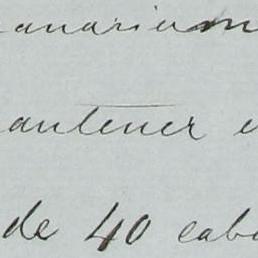 anarium
antener e
de 40 cab